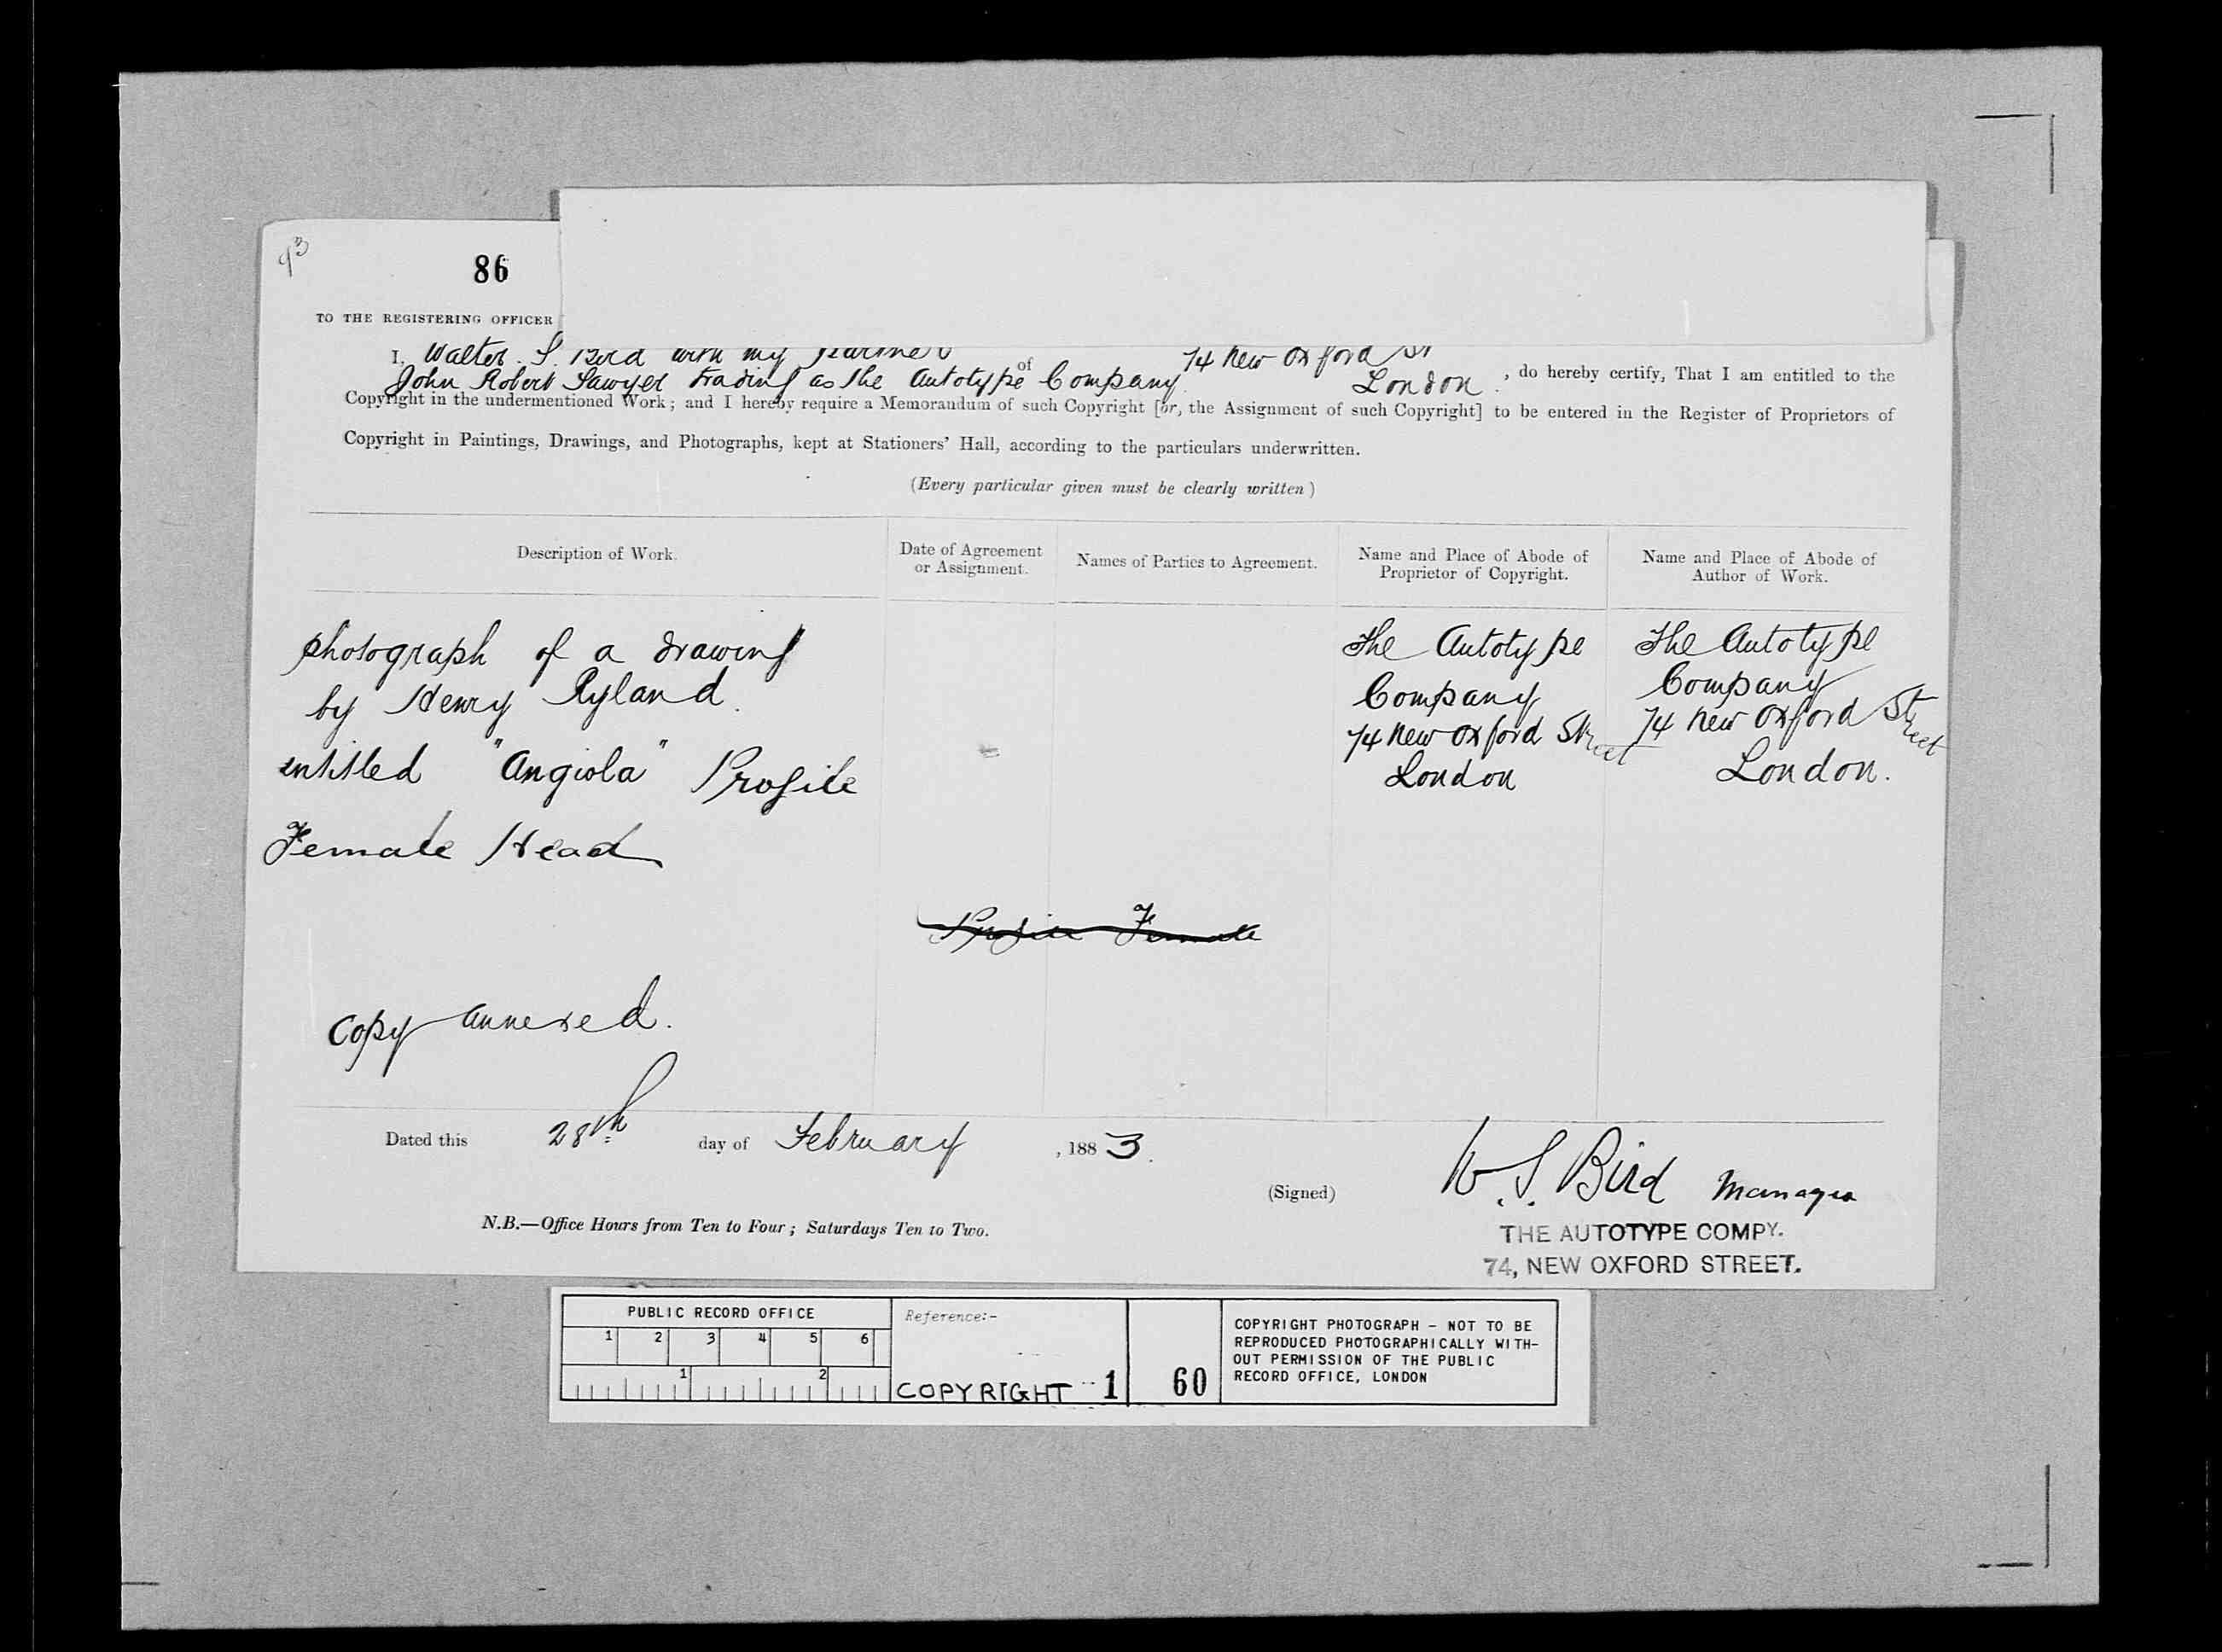 93
86
TO THE REGISTERING OFFICER
I, Walter. S. Bird with my partner of 74 New Oxford St
John Robert Sawyer trading as the Autotype Company. London. , do hereby certify, That I am entitled to the
Copyright in the undermentioned Work; and I hereby require a Memorandum of such Copyright [or, the Assignment of such Copyright] to be entered in the Register of Proprietors of
Copyright in Paintings, Drawings, and Photographs, kept at Stationers' Hall, according to the particulars underwritten.
(Every particular given must be clearly written)
Description of Work.
Date of Agreement
or Assignment.
Names of Parties to Agreement.
Name and Place of Abode of
Proprietor of Copyright.
Name and Place of Abode of
Author of Work.
photograph of a drawing
by Henry Ryland.
entitled "Angiola" Profile
Female Head
Copy annexed.
Profile Female
The Autotype
Company
74 New Oxford Street
London
The Autotype
Company
74 New Oxford Street
London.
Dated this 28th day of February , 1883.
(Signed) W. S. Bird Manager
THE AUTOTYPE COMPY.
74, NEW OXFORD STREET.
N.B.—Office Hours from Ten to Four; Saturdays Ten to Two.
PUBLIC RECORD OFFICE
1 2 3 4 5 6
1 2
Reference:-
COPYRIGHT 1
60
COPYRIGHT PHOTOGRAPH - NOT TO BE
REPRODUCED PHOTOGRAPHICALLY WITH-
OUT PERMISSION OF THE PUBLIC
RECORD OFFICE, LONDON